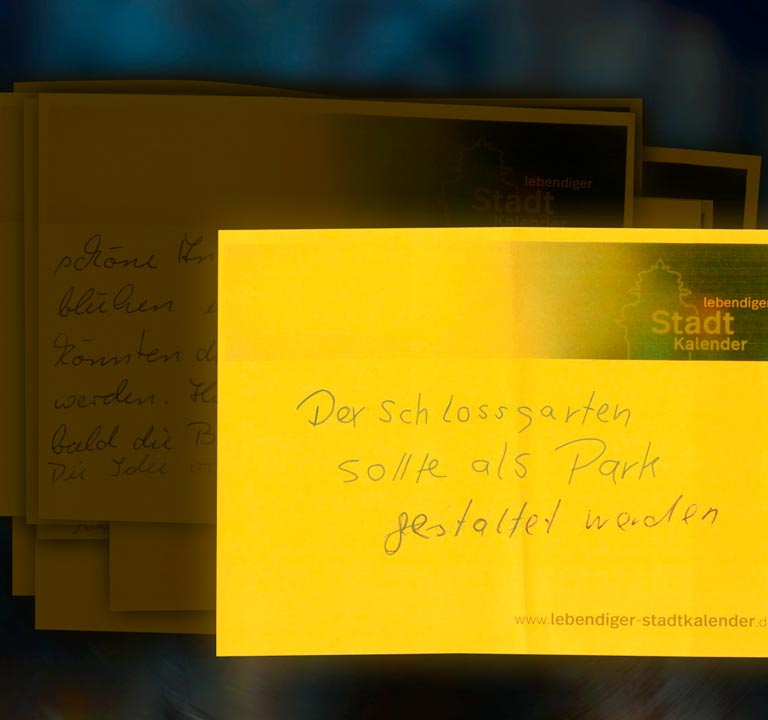 lebendiger
Stadt
Kalender
schöne
blühen
könnten
werden.
bald die
Die Idee
lebendiger
Stadt
Kalender
Der Schlossgarten
sollte als Park
gestaltet werden
www.lebendiger-stadtkalender.d